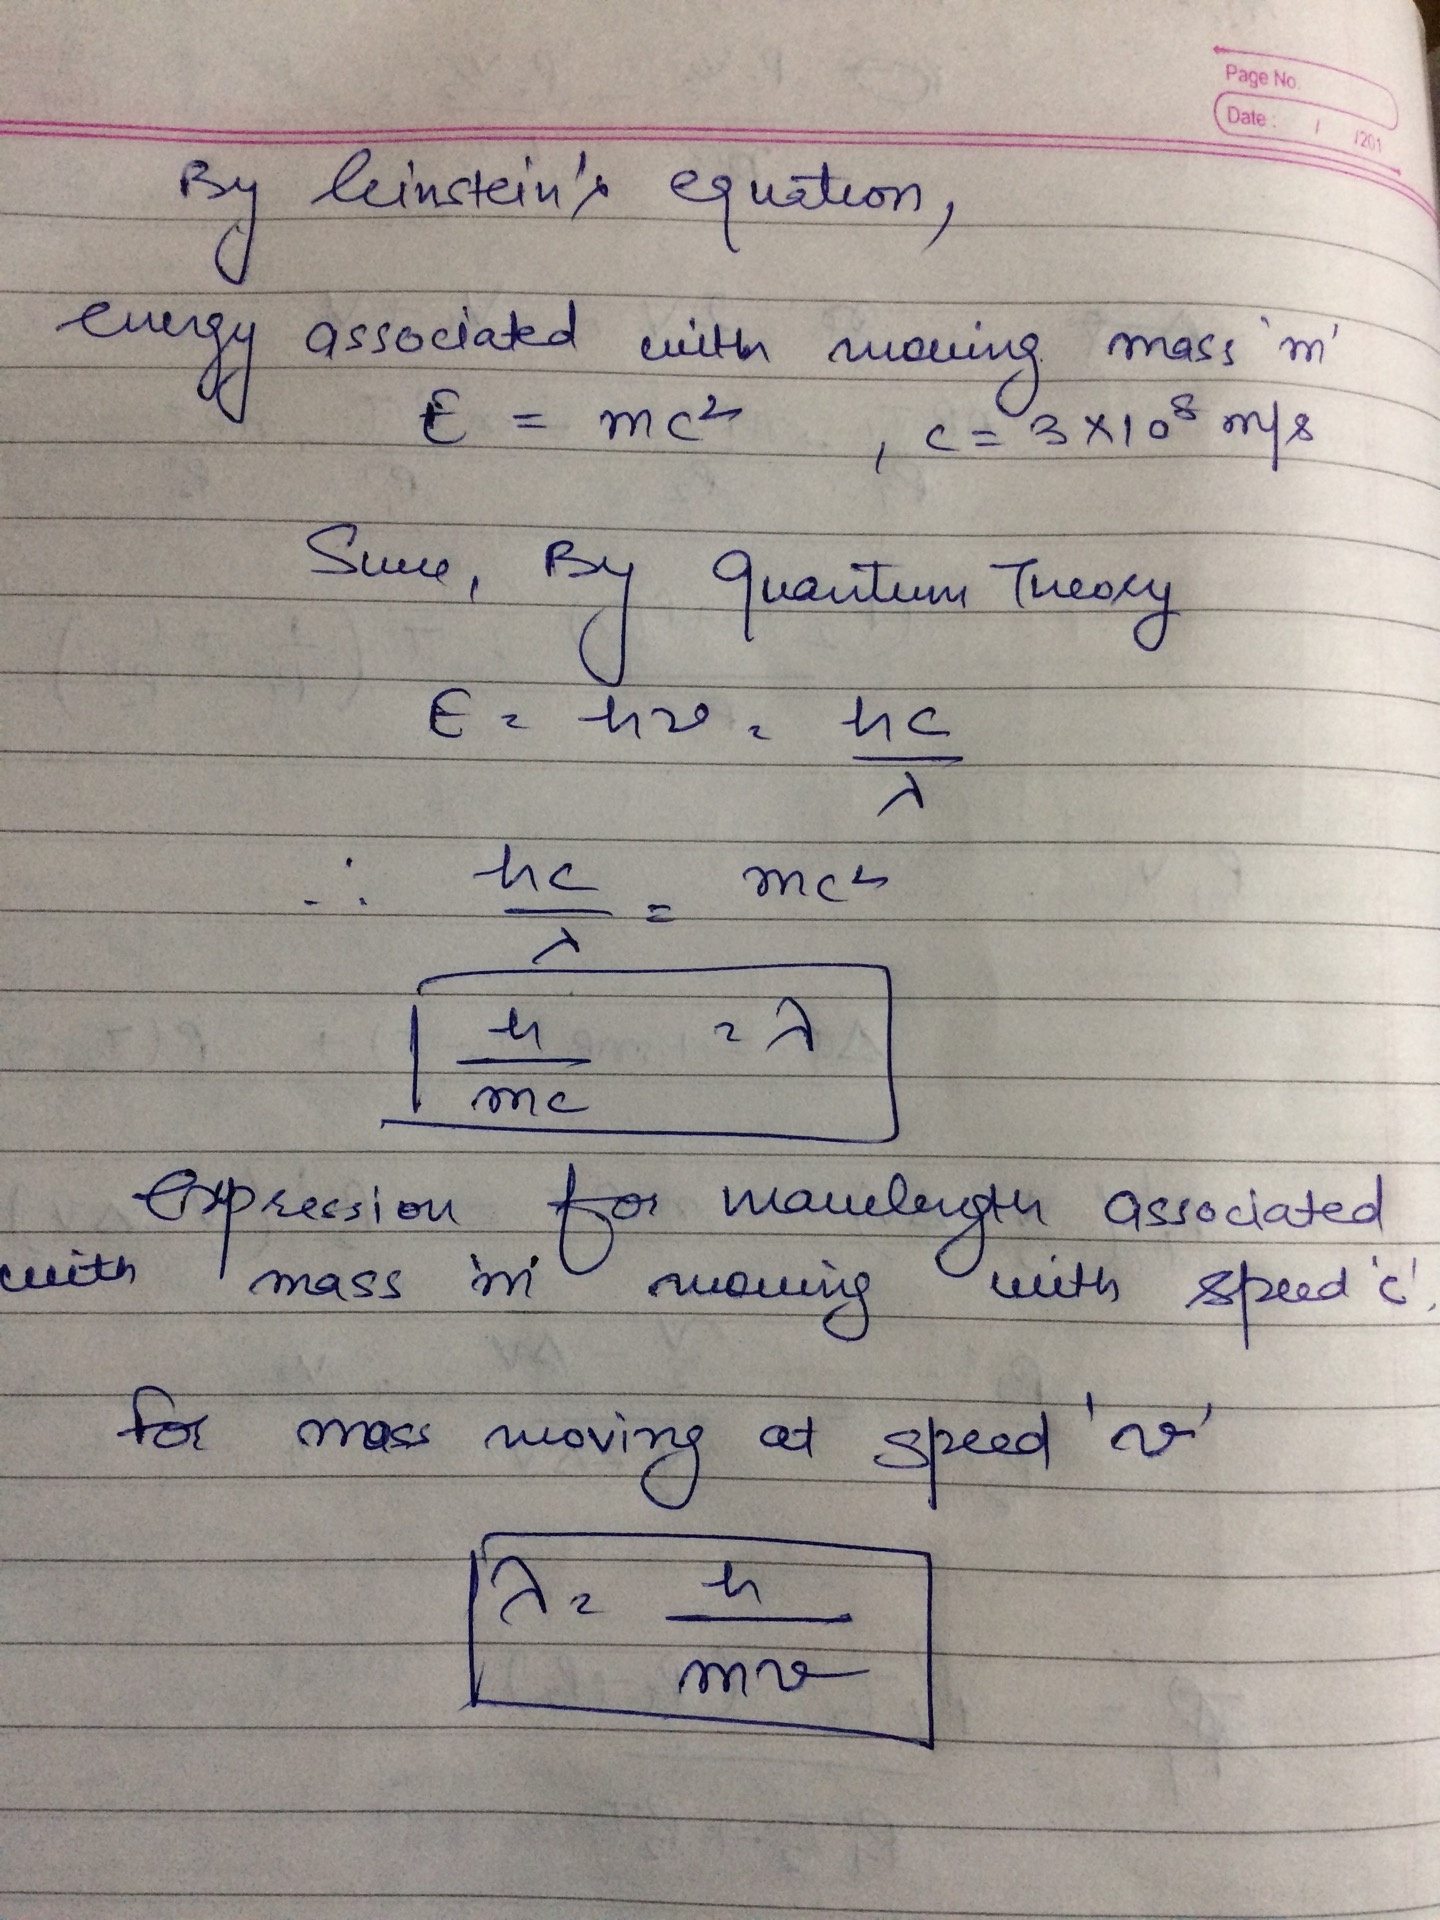 Page No.
Date : / /201
By Einstein's equation,
energy associated with moving mass 'm'
E = mc² , c = 3×10⁸ m/s
Since, By Quantum Theory
E = hν = hc/λ
∴ hc/λ = mc²
h/mc = λ
Expression for wavelength associated
with mass 'm' moving with speed 'c'.
for mass moving at speed 'v'
λ = h/mv